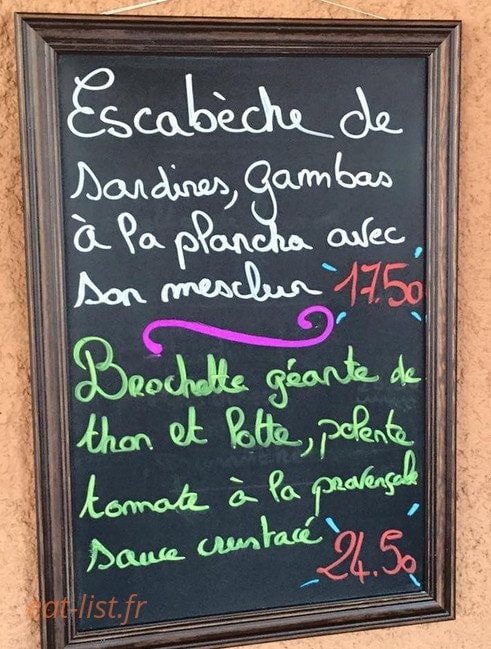 Escabèche de
sardines, gambas
à la plancha avec
son mesclun 17.50
Brochette géante de
thon et lotte, polente
tomate à la provençale
sauce crustacé
24.50
eat-list.fr